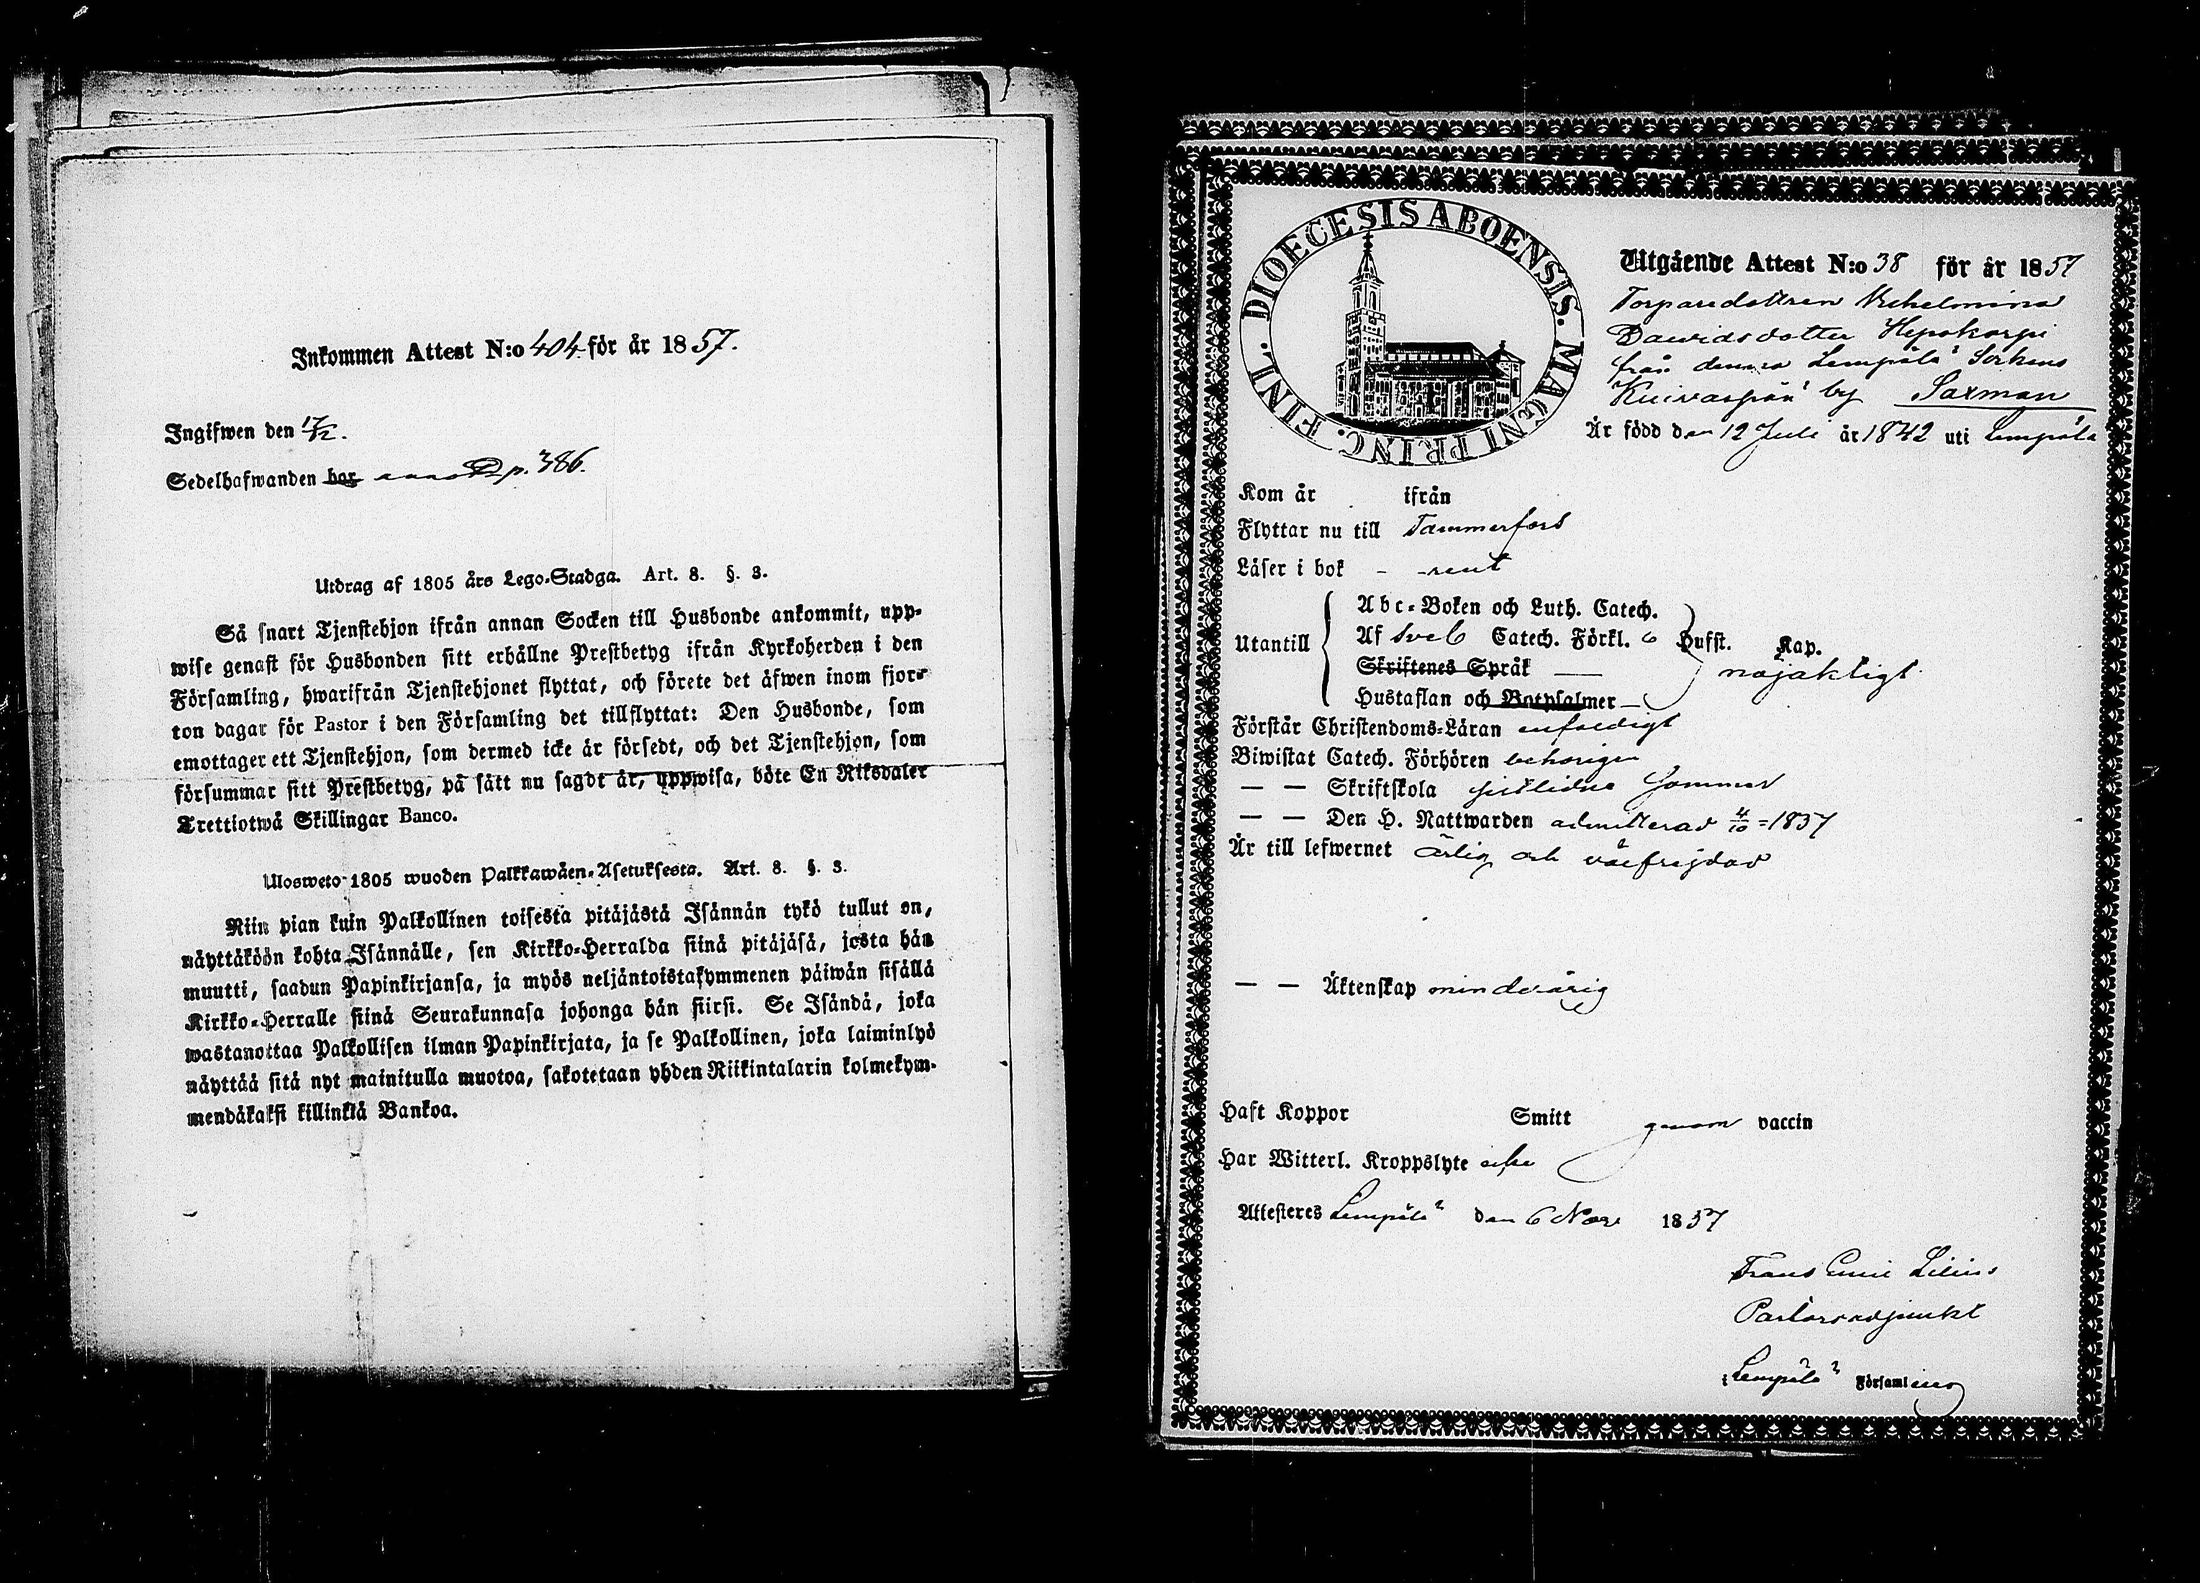 Inkommen Attest N:o 404 för år 1857.
Ingifwen den 17/12.
Sedelhafwanden bor p. 386.
Utdrag af 1805 års Lego-Stadga. Art. 8. §. 3.
Så snart Tjenstehjon ifrån annan Socken till Husbonde ankommit, upp-
wise genast för Husbonden sitt erhållne Prestbetyg ifrån Kyrkoherden i den
Församling, hwarifrån Tjenstehjonet flyttat, och förete det äfwen inom fjor-
ton dagar för Pastor i den Församling det tillflyttat: Den Husbonde, som
emottager ett Tjenstehjon, som dermed icke är försedt, och det Tjenstehjon, som
försummar sitt Prestbetyg, på sätt nu sagdt är, uppwisa, böte En Riksdaler
Trettiotwå Skillingar Banco.
Ulosweto 1805 wuoden Palkkawäen-Asetuksesta. Art. 8. §. 3.
Niin pian kuin Palkollinen toisesta pitäjästä Isännän tykö tullut on,
näyttäköön kohta Isännälle, sen Kirkko-Herralda siinä pitäjäsä, josta hän
muutti, saadun Papinkirjansa, ja myös neljäntoistakymmenen päiwän sisällä
Kirkko-Herralle siinä Seurakunnasa johonga hän siirsi. Se Isändä, joka
wastanottaa Palkollisen ilman Papinkirjata, ja se Palkollinen, joka laiminlyö
näyttää sitä nyt mainitulla muotoa, sakotetaan yhden Riikintalarin kolmekym-
mendäkaksi killinkiä Bankoa.
DIOECESIS ABOENSIS. MAGNI PRINC. FINL.
Utgående Attest N:o 38 för år 1857
Torparedottren Wilhelmina
Dawidsdotter Hepokorpi
från denna Lempälä Sockens
Kuivaspää by Saxman
Är född den 12 Juli år 1842 uti Lempälä
Kom år ifrån
Flyttar nu till Tammerfors
Läser i bok - - rent
Utantill
Abc-Boken och Luth. Catech.
Af Sveb Catech. Förkl. 6 Hufst. Kap.
Skriftenes Språk —
Hustaflan och Botpsalmer —
nöjaktigt
Förstår Christendoms-Läran enfaldigt
Biwistat Catech. Förhören behörigen
— — Skriftskola sistlidne sommar
— — Den H. Nattwarden admitterad 4/10 1857
Är till lefwernet ärlig och wälfrejdad
— — Äktenskap minderårig
Haft Koppor Smitt genom vaccin
Har Witterl. Kroppslyte icke
Attesteres Lempälä den 6 Nov. 1857
Frans Emil Lilius
Pastorsadjunkt
i Lempälä Församling